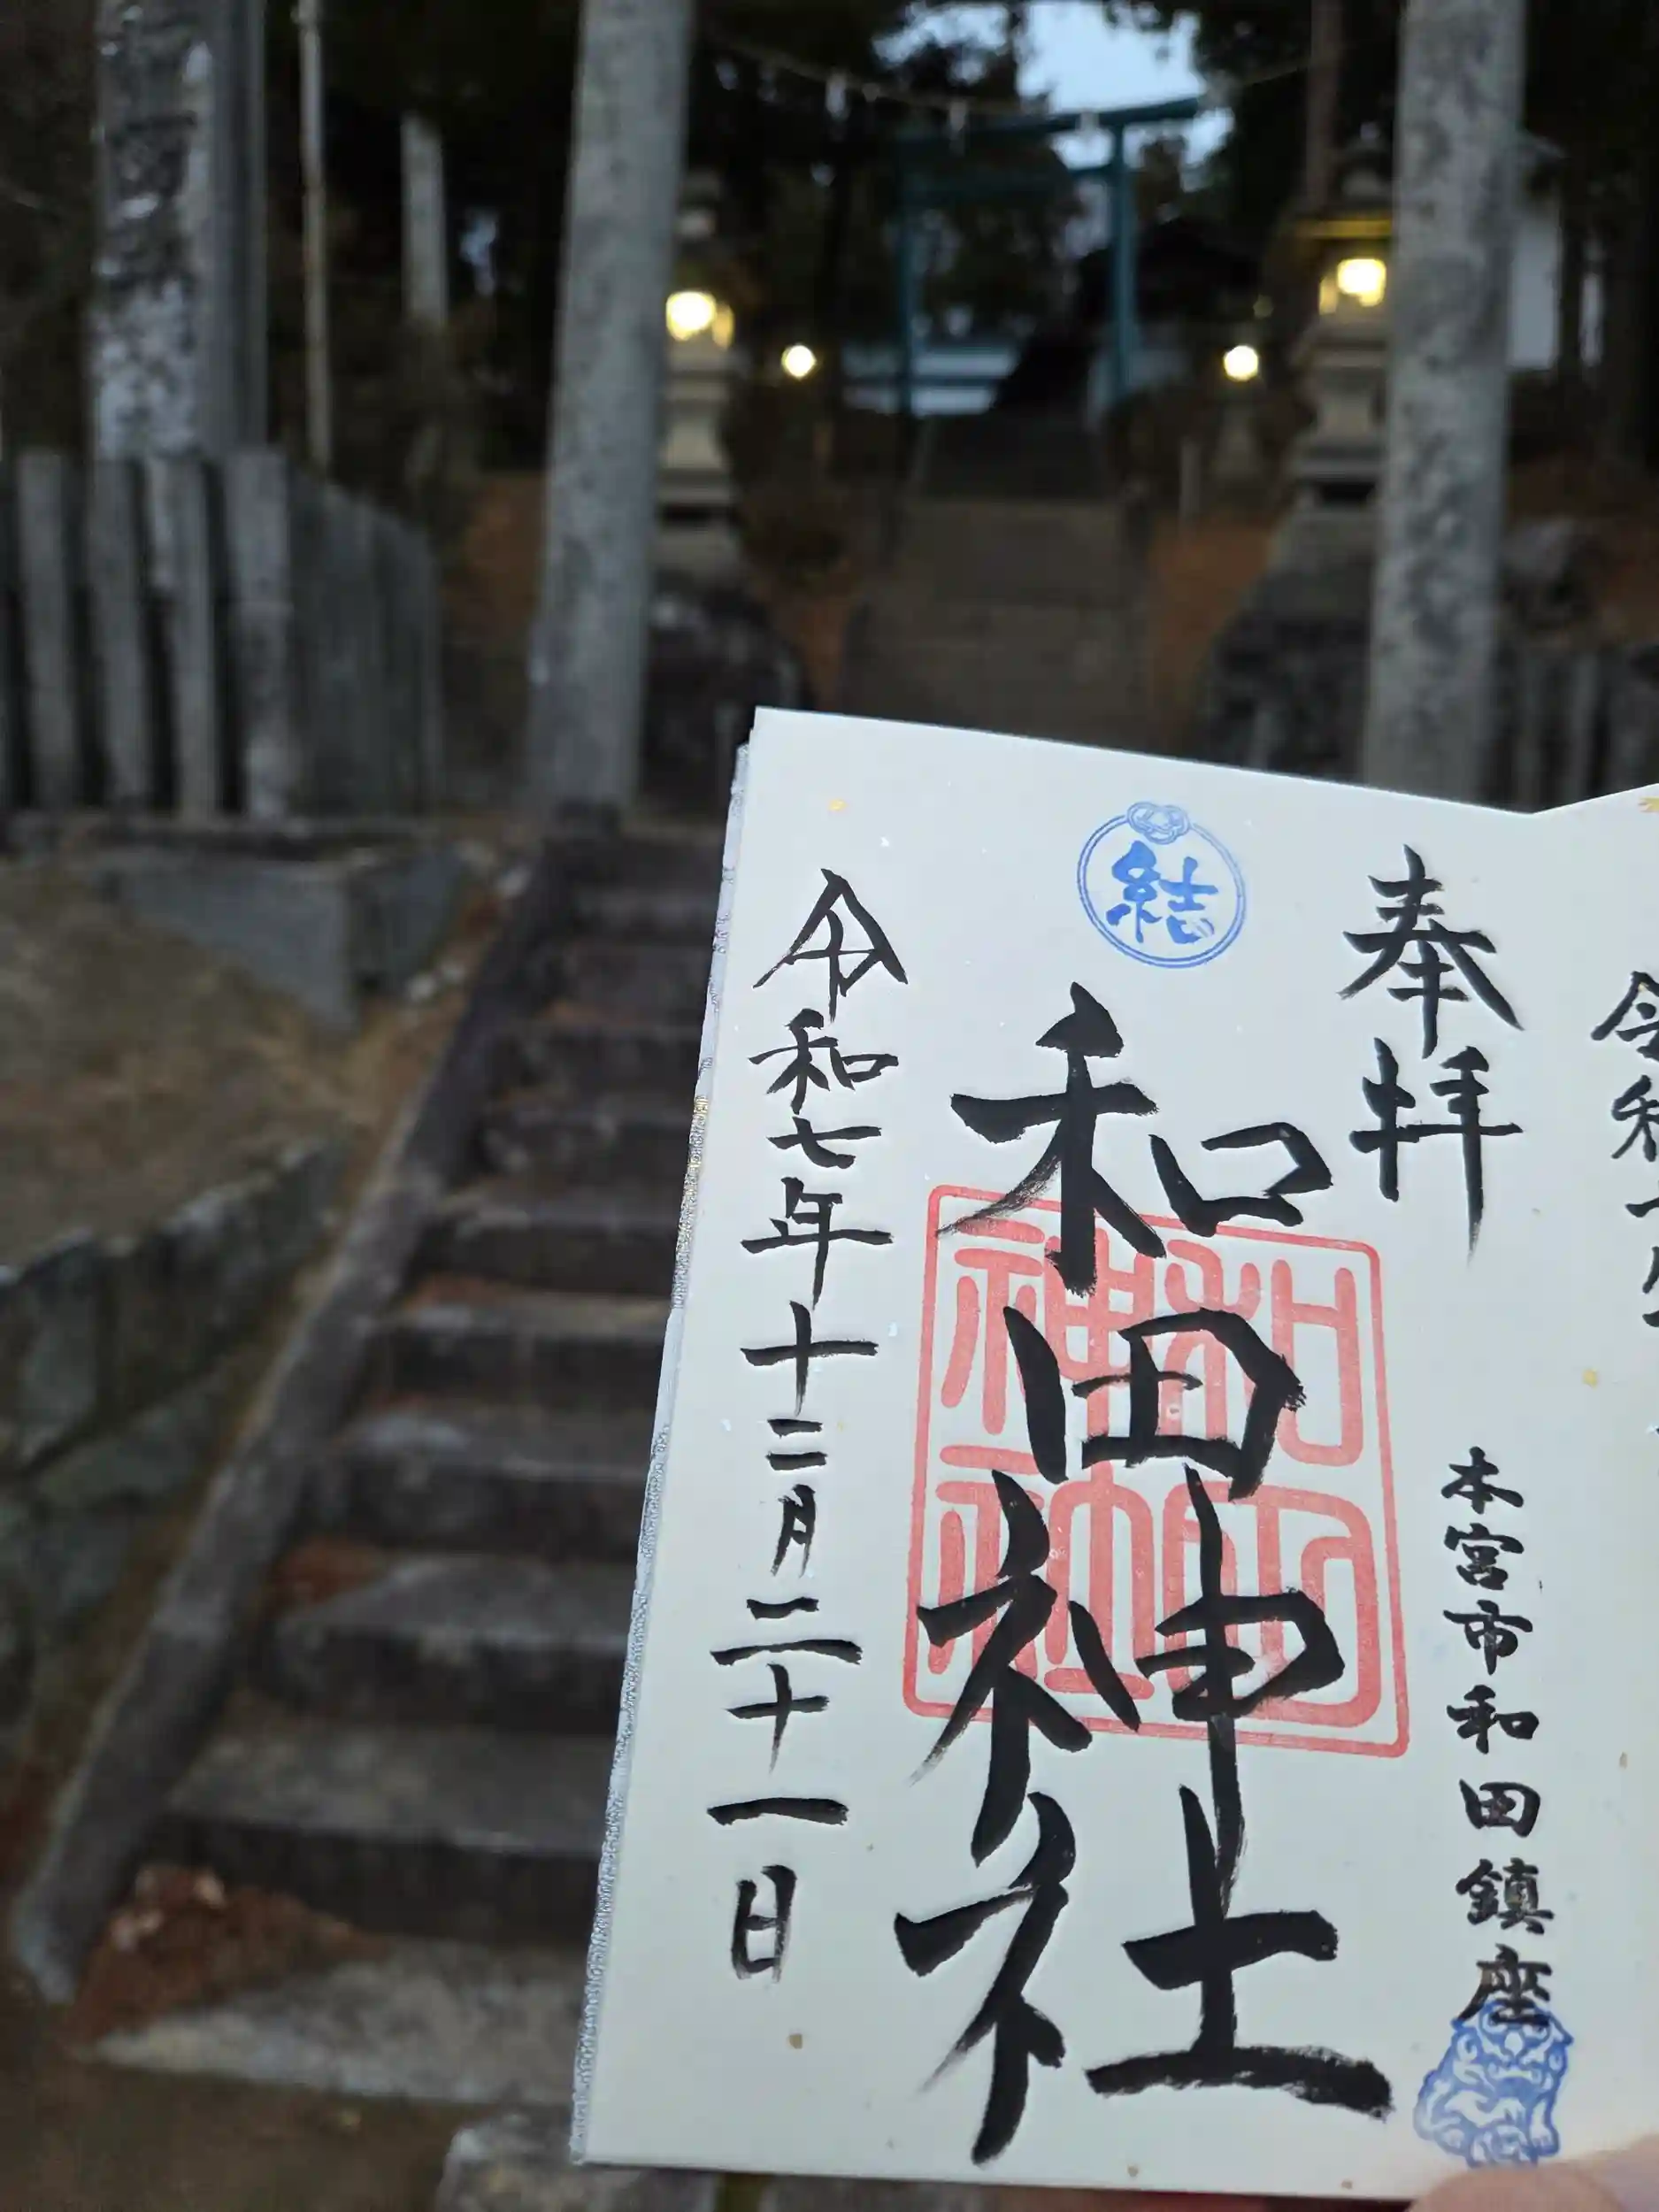 奉拝
本宮市和田鎮座
結
和田神社
和田神社
令和七年十二月二十一日
令和七年